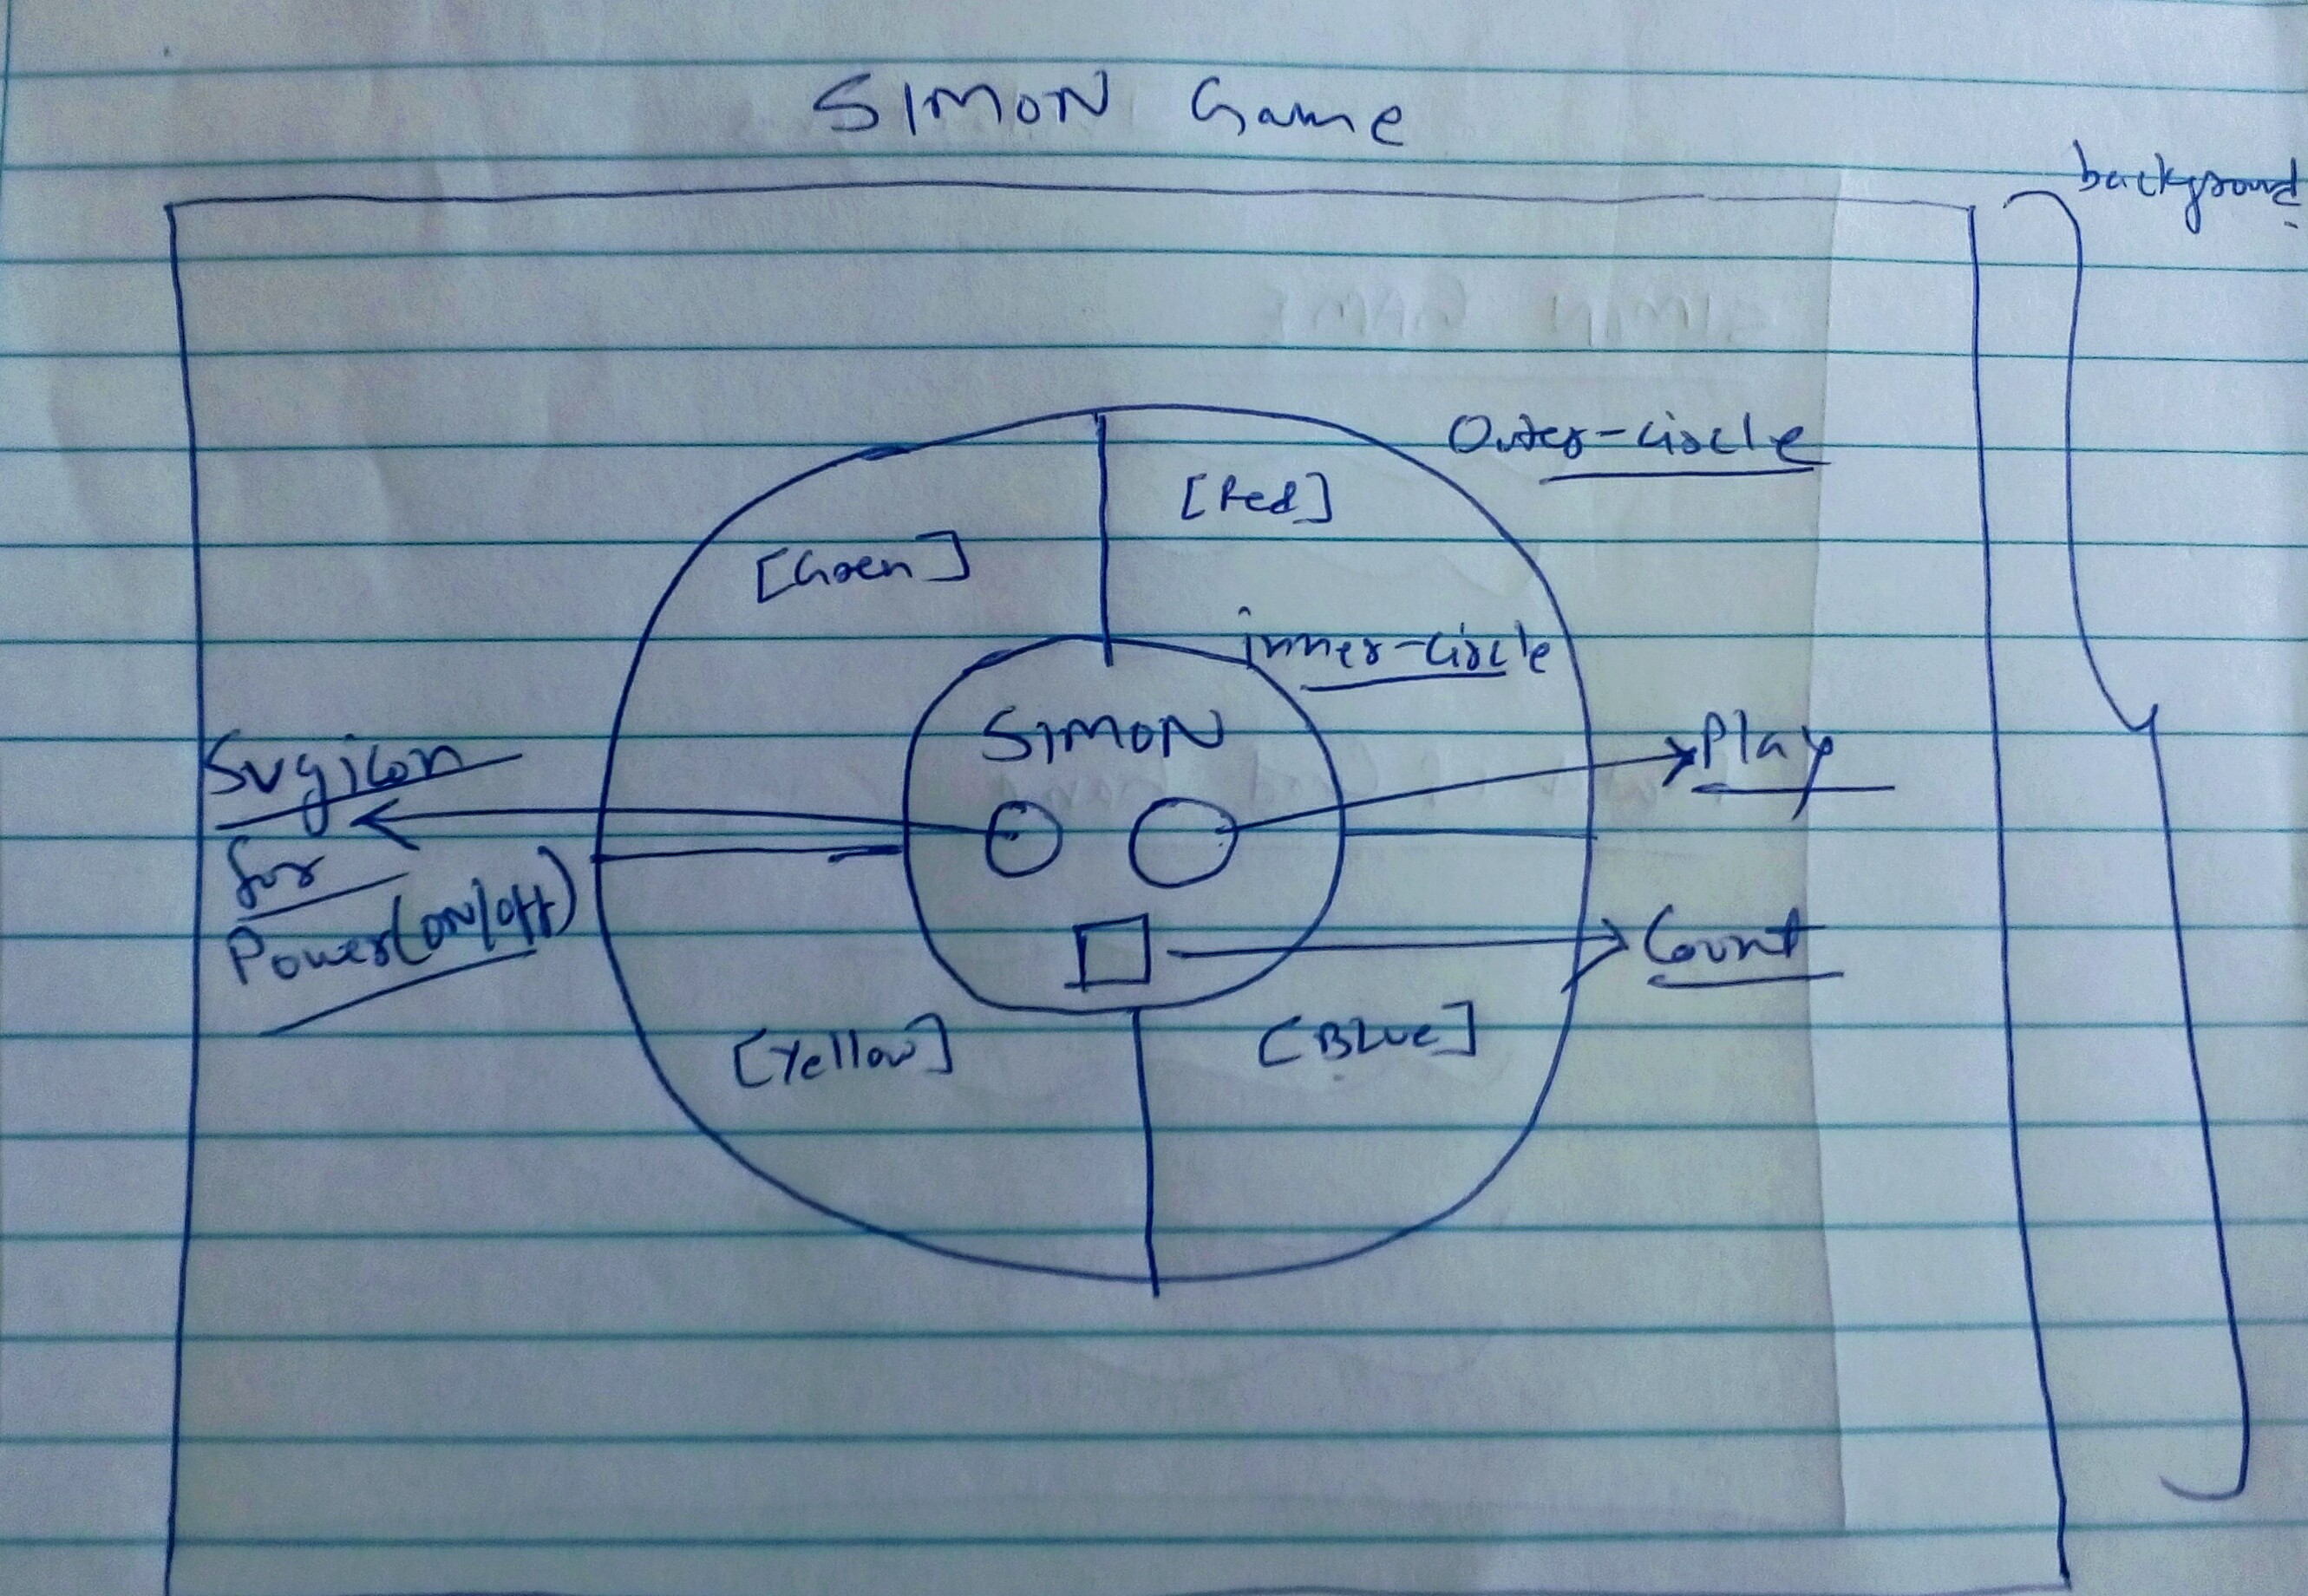 SIMON Game
background
Outer-circle
[Red]
[Green]
inner-circle
SIMON
Svgicon
for
Power(on/off)
Play
Count
[Yellow]
[Blue]
SIMON GAME